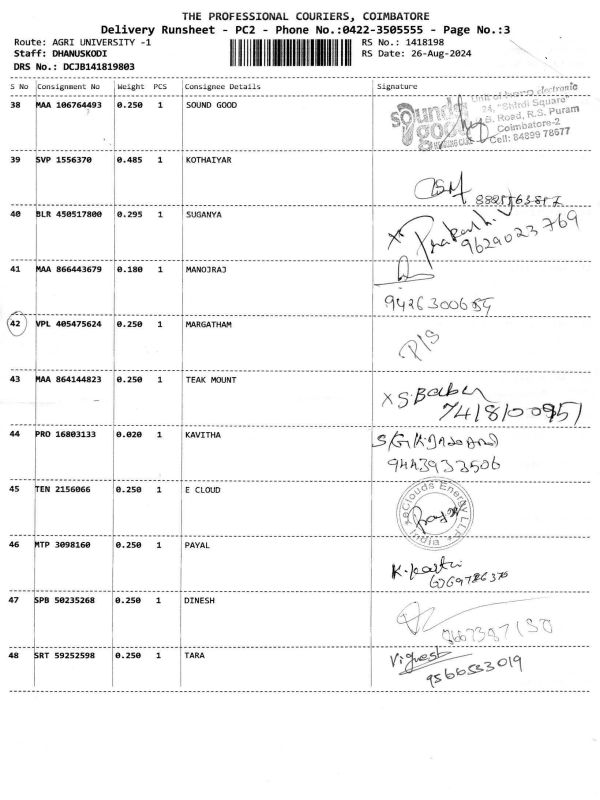 THE PROFESSIONAL COURIERS, COIMBATORE
Delivery Runsheet - PC2 - Phone No.:0422-3505555 - Page No.:3
Route: AGRI UNIVERSITY -1 RS No.: 1418198
Staff: DHANUSKODI RS Date: 26-Aug-2024
DRS No.: DCJB141819803
S No Consignment No Weight PCS Consignee Details Signature
38 MAA 106764493 0.250 1 SOUND GOOD
sound good
Unit of electronic
24, "Shirdi Square"
B. Road, R.S. Puram
Coimbatore-2
Cell: 84899 78677
39 SVP 1556370 0.485 1 KOTHAIYAR
40 BLR 450517800 0.295 1 SUGANYA
9629023769
41 MAA 866443679 0.180 1 MANOJRAJ
9426300684
42 VPL 405475624 0.250 1 MARGATHAM
P/S
43 MAA 864144823 0.250 1 TEAK MOUNT
44 PRO 16803133 0.020 1 KAVITHA
9443933506
45 TEN 2156066 0.250 1 E CLOUD
eClouds Energy LLP
India
46 MTP 3098160 0.250 1 PAYAL
47 SPB 50235268 0.250 1 DINESH
48 SRT 59252598 0.250 1 TARA
Vignesh
9566553019